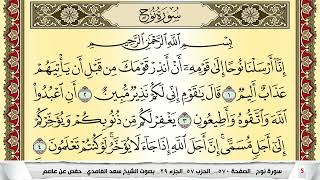 سُورَةُ نُوحٍ
بِسْمِ ٱللَّهِ ٱلرَّحْمَٰنِ ٱلرَّحِيمِ
إِنَّآ أَرْسَلْنَا نُوحًا إِلَىٰ قَوْمِهِۦٓ أَنْ أَنذِرْ قَوْمَكَ مِن قَبْلِ أَن يَأْتِيَهُمْ
عَذَابٌ أَلِيمٌ ١ قَالَ يَٰقَوْمِ إِنِّي لَكُمْ نَذِيرٌ مُّبِينٌ ٢ أَنِ ٱعْبُدُوا۟
ٱللَّهَ وَٱتَّقُوهُ وَأَطِيعُونِ ٣ يَغْفِرْ لَكُم مِّن ذُنُوبِكُمْ وَيُؤَخِّرْكُمْ
إِلَىٰٓ أَجَلٍ مُّسَمًّى إِنَّ أَجَلَ ٱللَّهِ إِذَا جَآءَ لَا يُؤَخَّرُ لَوْ كُنتُمْ تَعْلَمُونَ ٤
سورة نوح . الصفحة ٥٧٠ . الحزب ٥٧ . الجزء ٢٩ . بصوت الشيخ سعد الغامدي . حفص عن عاصم